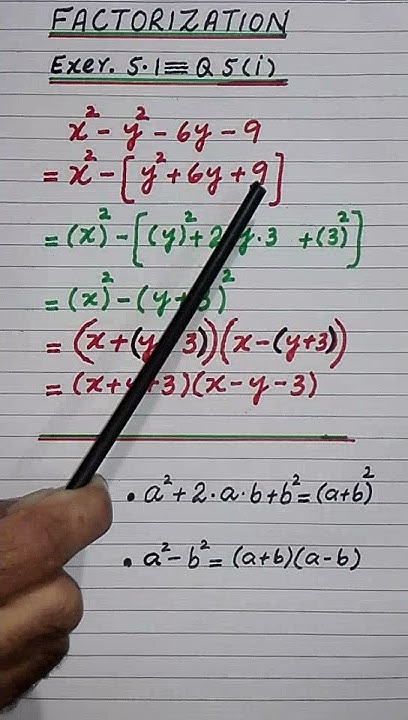 FACTORIZATION
Exer. 5.1 ≡ Q 5(i)
x² - y² - 6y - 9
= x² - [y² + 6y + 9]
= (x)² - [(y)² + 2 y·3 + (3)²]
= (x)² - (y+3)²
= (x+(y 3))(x-(y+3))
= (x+y+3)(x-y-3)
• a² + 2·a·b + b² = (a+b)²
• a² - b² = (a+b)(a-b)